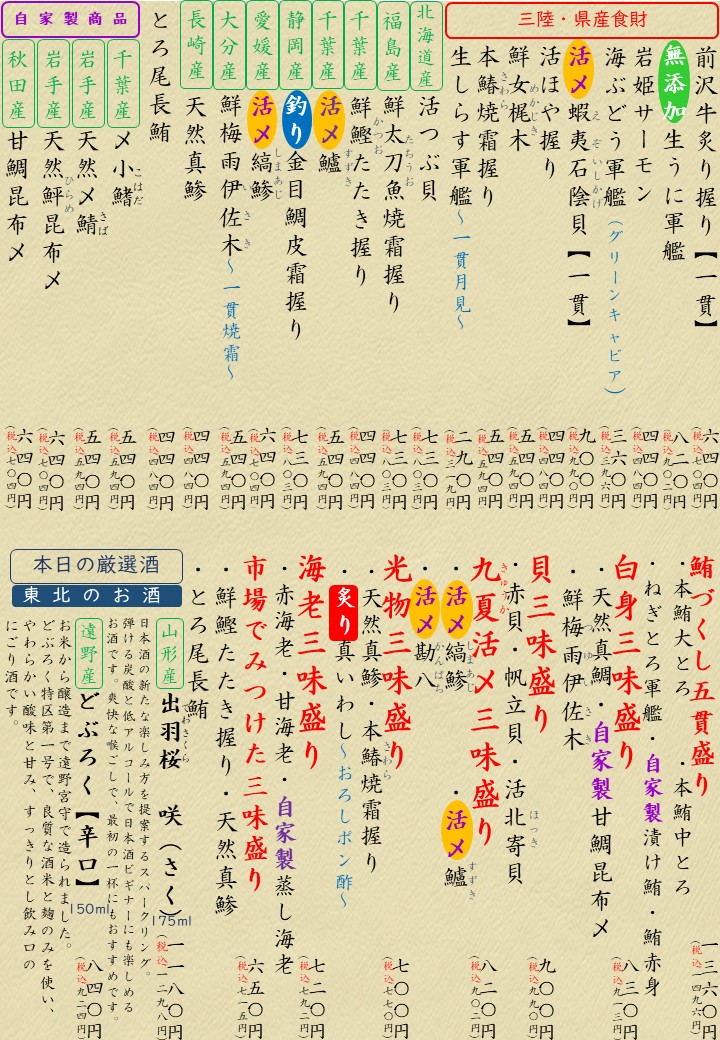 三陸・県産食財
前沢牛炙り握り【一貫】 六四〇円 (税込七〇四円)
無添加 生うに軍艦 八二〇円 (税込九〇二円)
岩姫サーモン 四四〇円 (税込四八四円)
海ぶどう軍艦(グリーンキャビア) 三六〇円 (税込三九六円)
活〆 蝦夷石陰貝【一貫】 九〇〇円 (税込九九〇円)
えぞいしかげ
活ほや握り 四四〇円 (税込四八四円)
鮮女梶木 五四〇円 (税込五九四円)
めかじき
本鰆焼霜握り 五四〇円 (税込五九四円)
さわら
生しらす軍艦~一貫月見~ 二九〇円 (税込三一九円)
北海道産
活つぶ貝 七三〇円 (税込八〇三円)
福島産
鮮太刀魚焼霜握り 七三〇円 (税込八〇三円)
たちうお
千葉産
鮮鰹たたき握り 四四〇円 (税込四八四円)
かつお
千葉産
活〆 鱸 五四〇円 (税込五九四円)
すずき
静岡産
釣り 金目鯛皮霜握り 七三〇円 (税込八〇三円)
愛媛産
活〆 縞鯵 六四〇円 (税込七〇四円)
しまあじ
大分産
鮮梅雨伊佐木~一貫焼霜~ 五四〇円 (税込五九四円)
いさき
長崎産
天然真鯵 四四〇円 (税込四八四円)
とろ尾長鮪 四四〇円 (税込四八四円)
自家製商品
千葉産
〆小鰭 五四〇円 (税込五九四円)
こはだ
岩手産
天然〆鯖 五四〇円 (税込五九四円)
さば
岩手産
天然鮃昆布〆 六四〇円 (税込七〇四円)
ひらめ
秋田産
甘鯛昆布〆 六四〇円 (税込七〇四円)
鮪づくし五貫盛り 一三六〇円 (税込一四九六円)
・本鮪大とろ ・本鮪中とろ
・ねぎとろ軍艦・自家製漬け鮪・鮪赤身
白身三味盛り 八三〇円 (税込九一三円)
・天然真鯛・自家製甘鯛昆布〆
・鮮梅雨伊佐木
つゆ いさき
貝三味盛り 九〇〇円 (税込九九〇円)
・赤貝・帆立貝・活北寄貝
ほっき
九夏活〆三味盛り 八二〇円 (税込九〇二円)
きゅうか
・活〆 縞鯵 ・活〆 鱸
しまあじ すずき
・活〆 勘八
かんぱち
光物三味盛り 七〇〇円 (税込七七〇円)
・天然真鯵・本鰆焼霜握り
さわら
・炙り 真いわし~おろしポン酢~
海老三味盛り 七二〇円 (税込七九二円)
・赤海老・甘海老・自家製蒸し海老
市場でみつけた三味盛り 六五〇円 (税込七一五円)
・鮮鰹たたき握り・天然真鯵
・とろ尾長鮪
本日の厳選酒
東北のお酒
山形産
出羽桜 咲(さく) 175ml 一一八〇円 (税込一二九八円)
でわさくら
日本酒の新たな楽しみ方を提案するスパークリング。
弾ける炭酸と低アルコールで日本酒ビギナーにも楽しめる
お酒です。爽快な喉ごしで、最初の一杯にもおすすめです。
遠野産
どぶろく【辛口】 150ml 八四〇円 (税込九二四円)
お米から醸造まで遠野宮守で造られました。
どぶろく特区第一号で、良質な酒米と麹のみを使い、
やわらかい酸味と甘み、すっきりとし飲み口の
にごり酒です。